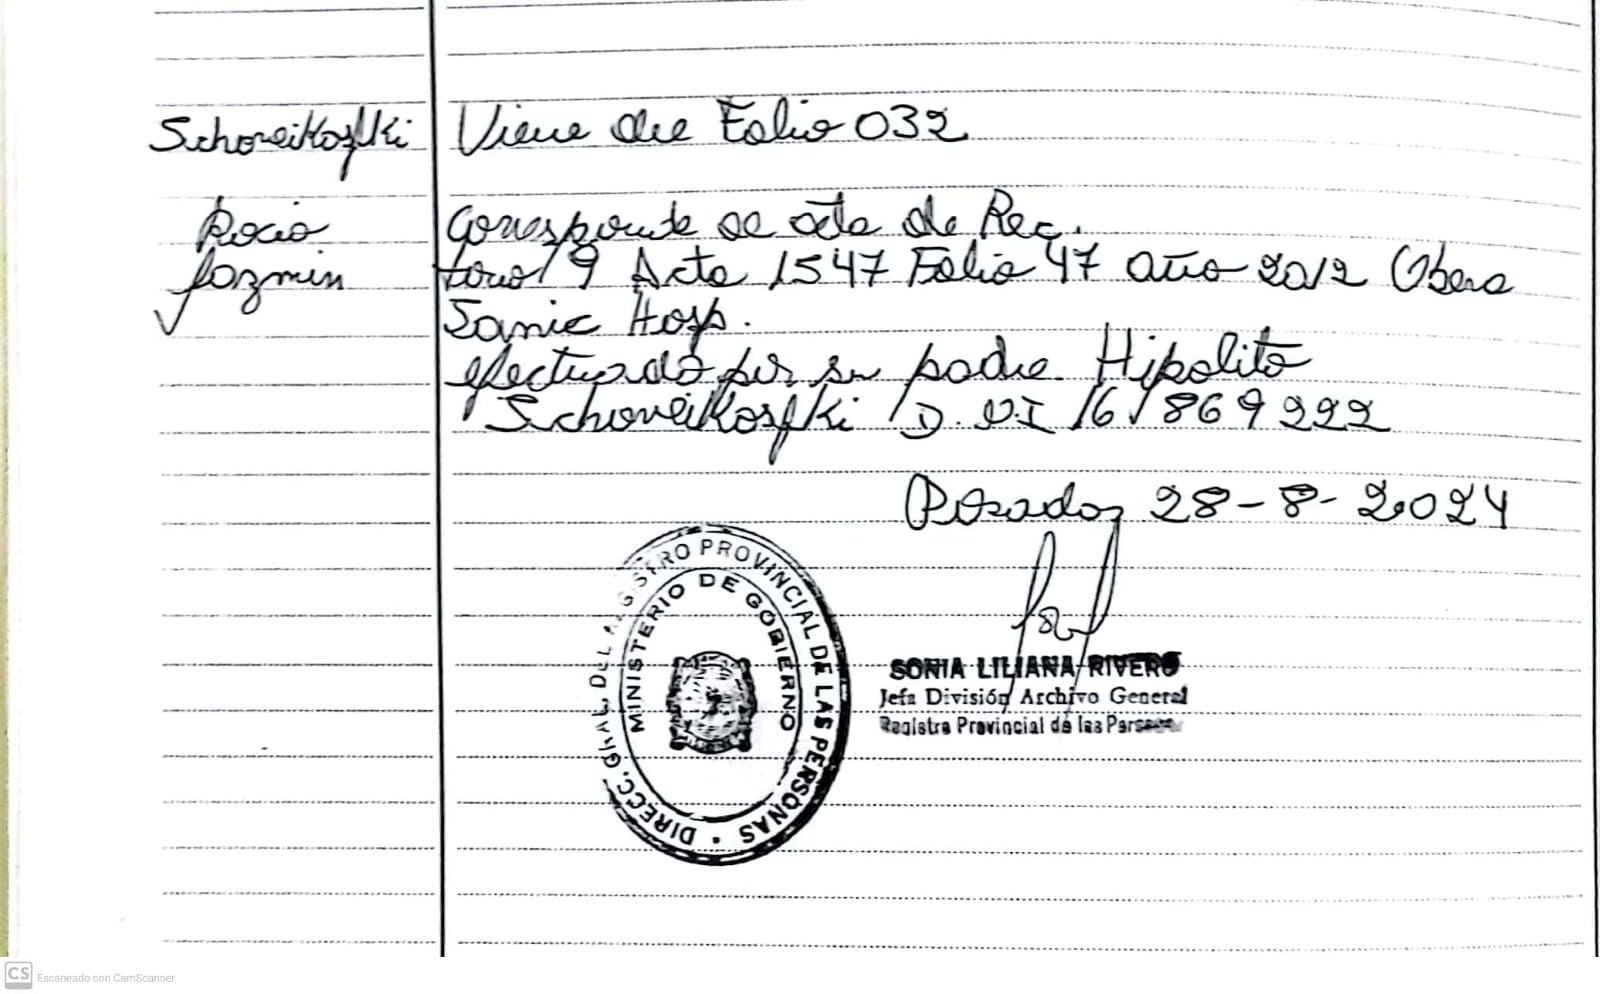 Schoveikoski
Viene del Folio 032
Rocio
Jazmin
Corresponde al acta de Rec.
tomo 19 Acta 1547 Folio 47 año 2012 Obera
Samic Hosp.
efectuado por su padre Hipolito
Schoveikoski D.N.I 16/869222
Posadas 28-8-2024
DIRECC. GRAL. DEL REGISTRO PROVINCIAL DE LAS PERSONAS
MINISTERIO DE GOBIERNO
SONIA LILIANA RIVERO
Jefa División Archivo General
Registro Provincial de las Personas
CS Escaneado con CamScanner